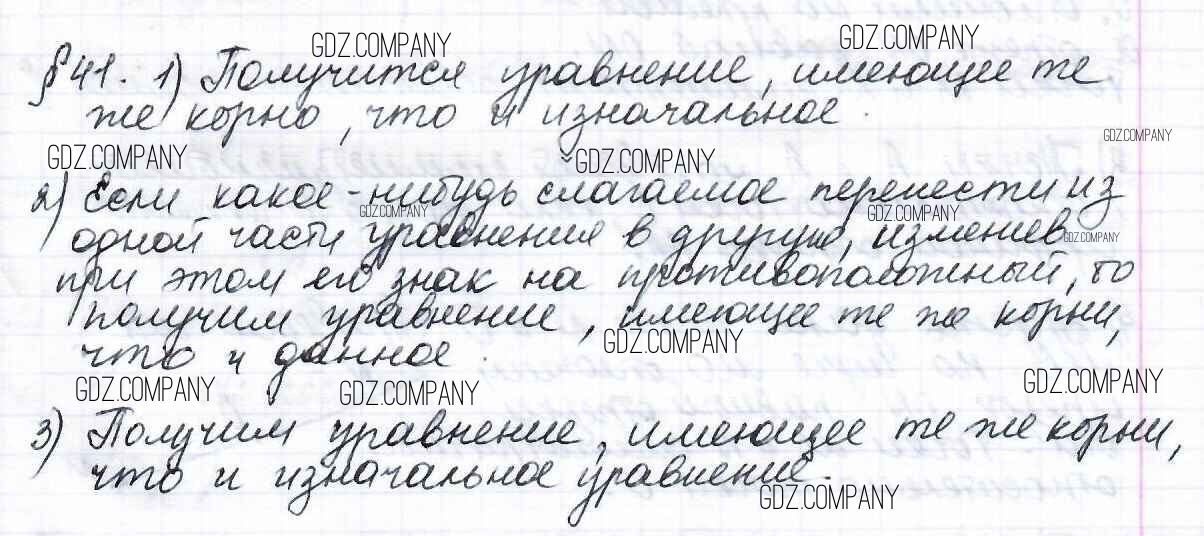 GDZ.COMPANY GDZ.COMPANY
§41. 1) Получится уравнение, имеющее те
же корно, что и изначальное.
GDZ.COMPANY
GDZ.COMPANY GDZ.COMPANY
2) Если какое-нибудь слагаемое перенести из
GDZ.COMPANY GDZ.COMPANY
одной части уравнения в другую, изменив
GDZ.COMPANY
при этом его знак на противоположный, то
получим уравнение, имеющее те же корни,
GDZ.COMPANY
что и данное.
GDZ.COMPANY GDZ.COMPANY GDZ.COMPANY
3) Получим уравнение, имеющее те же корни,
что и изначальное уравнение.
GDZ.COMPANY